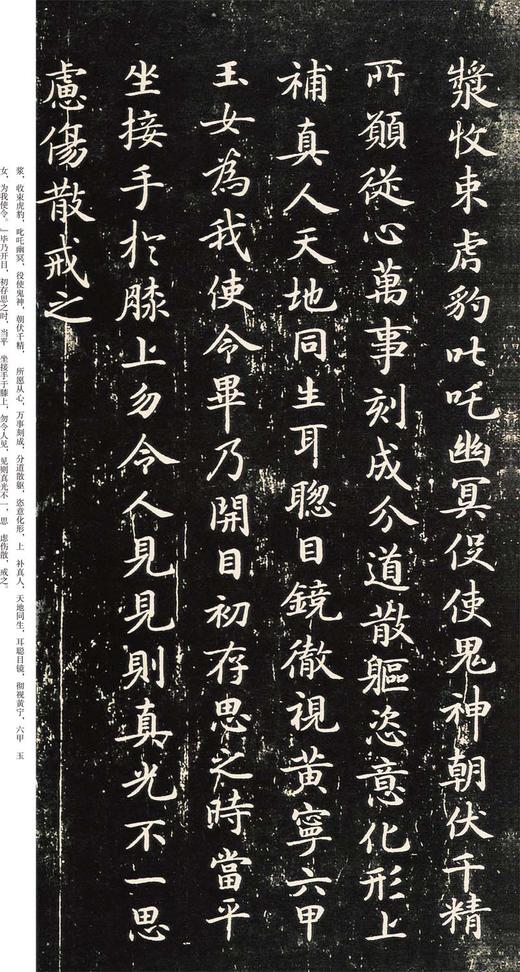 漿收束虎豹叱吒幽冥役使鬼神朝伏千精
所願從心萬事刻成分道散軀恣意化形上
補真人天地同生耳聰目鏡徹視黃寧六甲
玉女為我使令畢乃開目初存思之時當平
坐接手於膝上勿令人見見則真光不一思
慮傷散戒之
浆，收束虎豹，叱吒幽冥，役使鬼神，朝伏千精， 所愿从心，万事刻成，分道散躯，恣意化形，上 补真人，天地同生，耳聪目镜，彻视黄宁，六甲 玉
女，为我使令。』毕乃开目，初存思之时，当平 坐接手于膝上，勿令人见，见则真光不一，思 虑伤散，戒之。